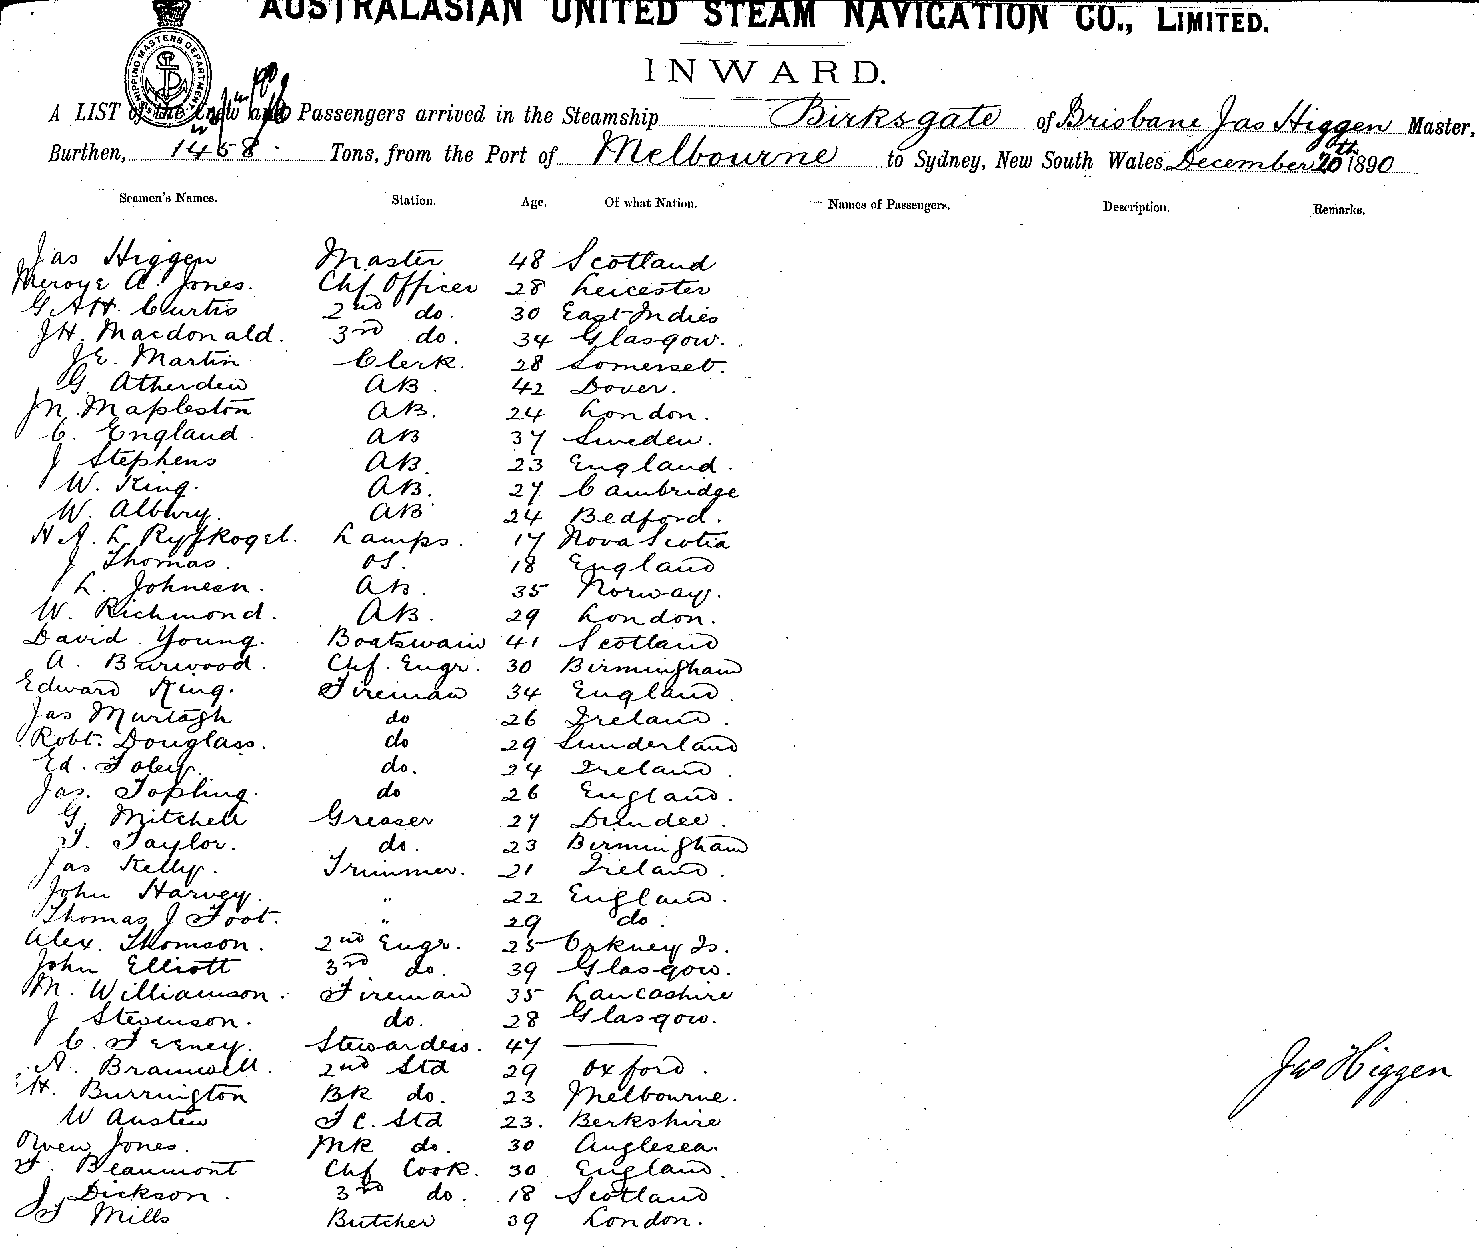 AUSTRALASIAN UNITED STEAM NAVIGATION CO., LIMITED.
INWARD.
A LIST of the Crew and Passengers arrived in the Steamship Birksgate of Brisbane Jas Higgen Master,
Burthen, 1458 Tons, from the Port of Melbourne to Sydney, New South Wales December 20th 1890
Seamen's Names. Station. Age. Of what Nation. Names of Passengers. Description. Remarks.
Jas Higgen Master 48 Scotland
A. Jones. Chf Officer 28 Leicester
G A H Curtis 2nd do. 30 East Indies
J H. Macdonald. 3rd do. 34 Glasgow.
J. E. Martin Clerk. 28 Somerset.
G. Atherden AB. 42 Dover.
Jn. Mapleston AB. 24 London.
C. England AB 37 Sweden.
J Stephens AB. 23 England.
W. King. AB. 27 Cambridge
W. Albury. AB 24 Bedford.
H A. L Ryfkogel. Lamps. 17 Nova Scotia
J Thomas. OS. 18 England
L. Johnsen. AB. 35 Norway.
W. Richmond. AB. 29 London.
David Young. Boatswain 41 Scotland
A. Burwood. Chf. Engr. 30 Birmingham
Edward King. Fireman 34 England.
Jas Murtagh do 26 Ireland.
Robt. Douglass. do 29 Sunderland
Ed. Foley. do. 24 Ireland.
Jas. Topling. do 26 England.
G. Mitchell Greaser 27 Dundee.
T. Taylor. do. 23 Birmingham
Jas Kelly. Trimmer. 21 Ireland.
John Harvey. " 22 England.
Thomas J Foot. " 29 do.
Alex. Thomson. 2nd Engr. 25 Orkney Is.
John Elliott 3rd do. 39 Glasgow.
M. Williamson. Fireman 35 Lancashire
J Stevenson. do. 28 Glasgow.
C. Feeney. Stewardess. 47 ——
A. Bramwell. 2nd Std 29 Oxford.
H. Burrington BK do. 23 Melbourne.
W Austin F C. Std 23. Berkshire
Owen Jones. MK do. 30 Anglesea.
F. Beaumont Chf Cook. 30 England.
J. Dickson. 3rd do. 18 Scotland
F Mills Butcher 39 London.
Jas Higgen